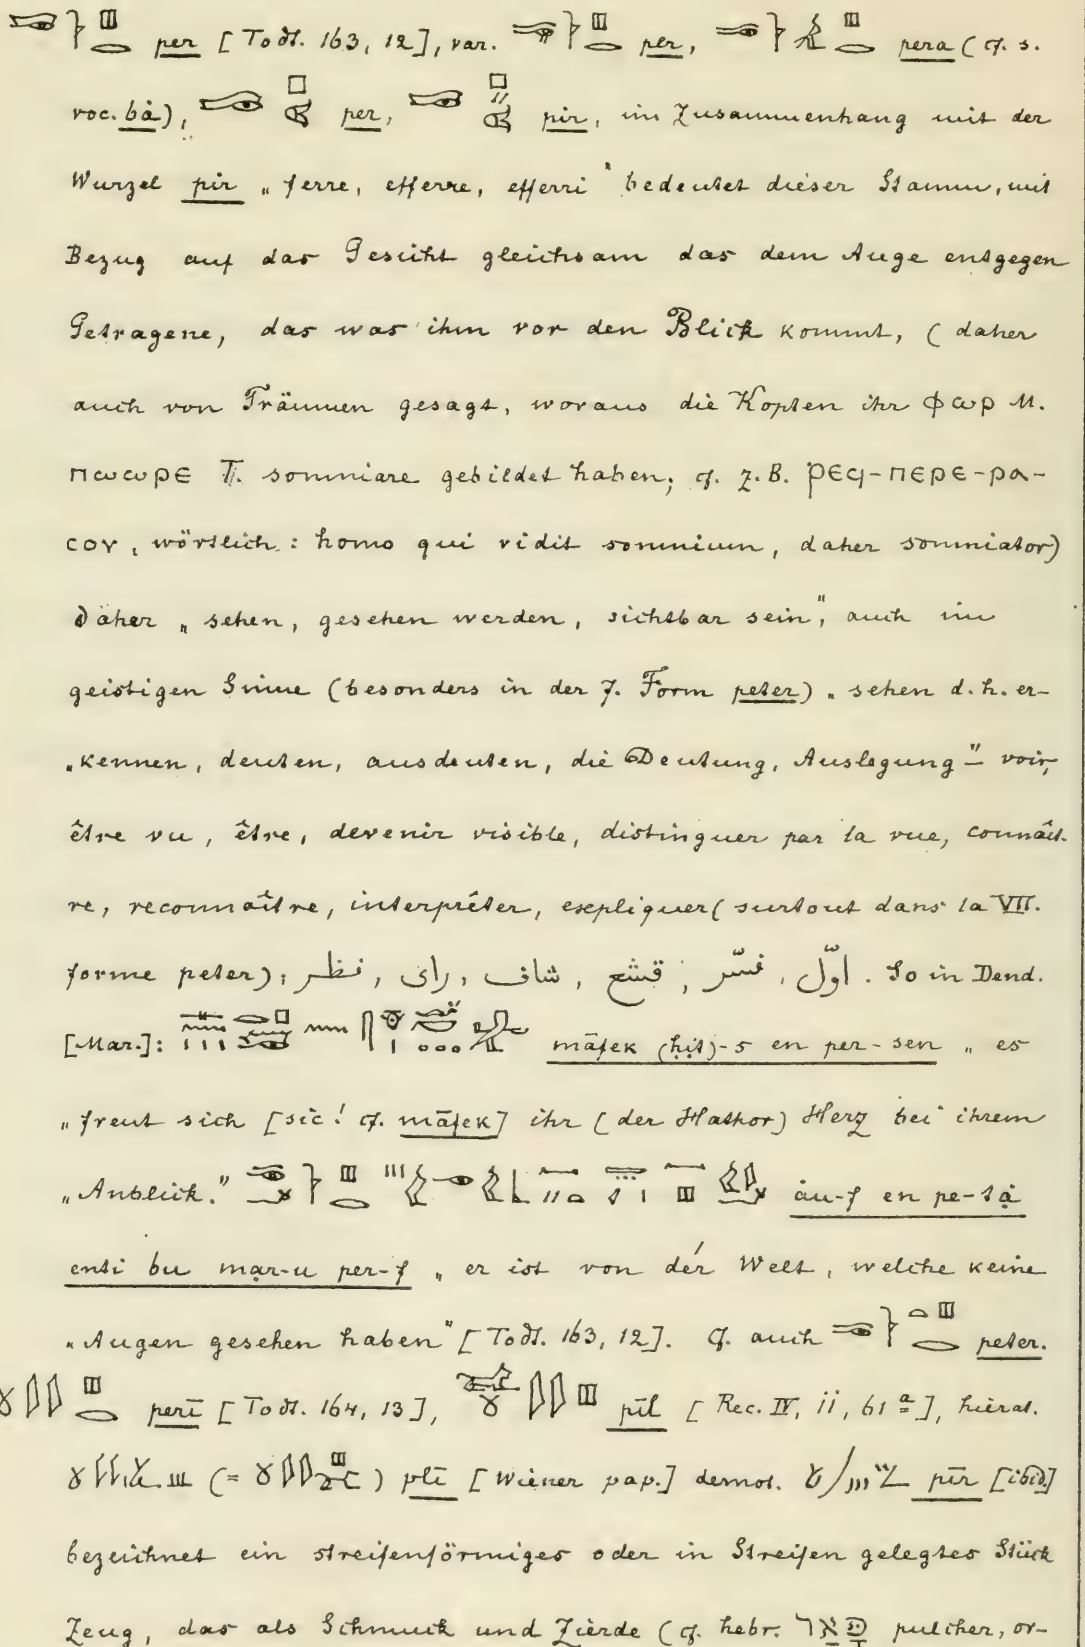 per [Todt. 163, 12], var. per, pera (cf. s.
voc. bȧ), per, pir, im Zusammenhang mit der
Wurzel pir „ferre, efferre, efferri“ bedeutet dieser Stamm, mit
Bezug auf das Gesicht gleichsam das dem Auge entgegen
Getragene, das was ihm vor den Blick kommt, (daher
auch von Träumen gesagt, woraus die Kopten ihr ⲫⲱⲣ M.
ⲡⲱⲱⲣⲉ T. somniare gebildet haben; cf. z.B. ⲣⲉϥ-ⲡⲉⲣⲉ-ⲣⲁ-
ⲥⲟⲩ, wörtlich: homo qui vidit somnium, daher somniator)
Daher „sehen, gesehen werden, sichtbar sein“, auch im
geistigen Sinne (besonders in der 7. Form peter) „sehen d.h. er-
„kennen, deuten, ausdeuten, die Deutung, Auslegung“ – voir,
être vu, être, devenir visible, distinguer par la vue, connaît-
re, reconnaître, interpréter, expliquer (surtout dans la VII.
forme peter); نظر, راى, شاف, قشع, فسّر, اوّل. So in Dend.
[Mar.]: māfek (ḥit)-s en per-sen „es
„freut sich [sic! cf. māfek] ihr (der Hathor) Herz bei ihrem
„Anblick.“ ȧu-f en pe-tȧ
enti bu mar-u per-f „er ist von der Welt, welche keine
„Augen gesehen haben“ [Todt. 163, 12]. Cf. auch peter.
perī [Todt. 164, 13], pīl [Rec. IV, ii, 61 a], hierat.
(= ) plī [Wiener pap.] demot. pīr [ibid.]
bezeichnet ein streifenförmiges oder in Streifen gelegtes Stück
Zeug, das als Schmuck und Zierde (cf. hebr. פָּאַר pulcher, or-